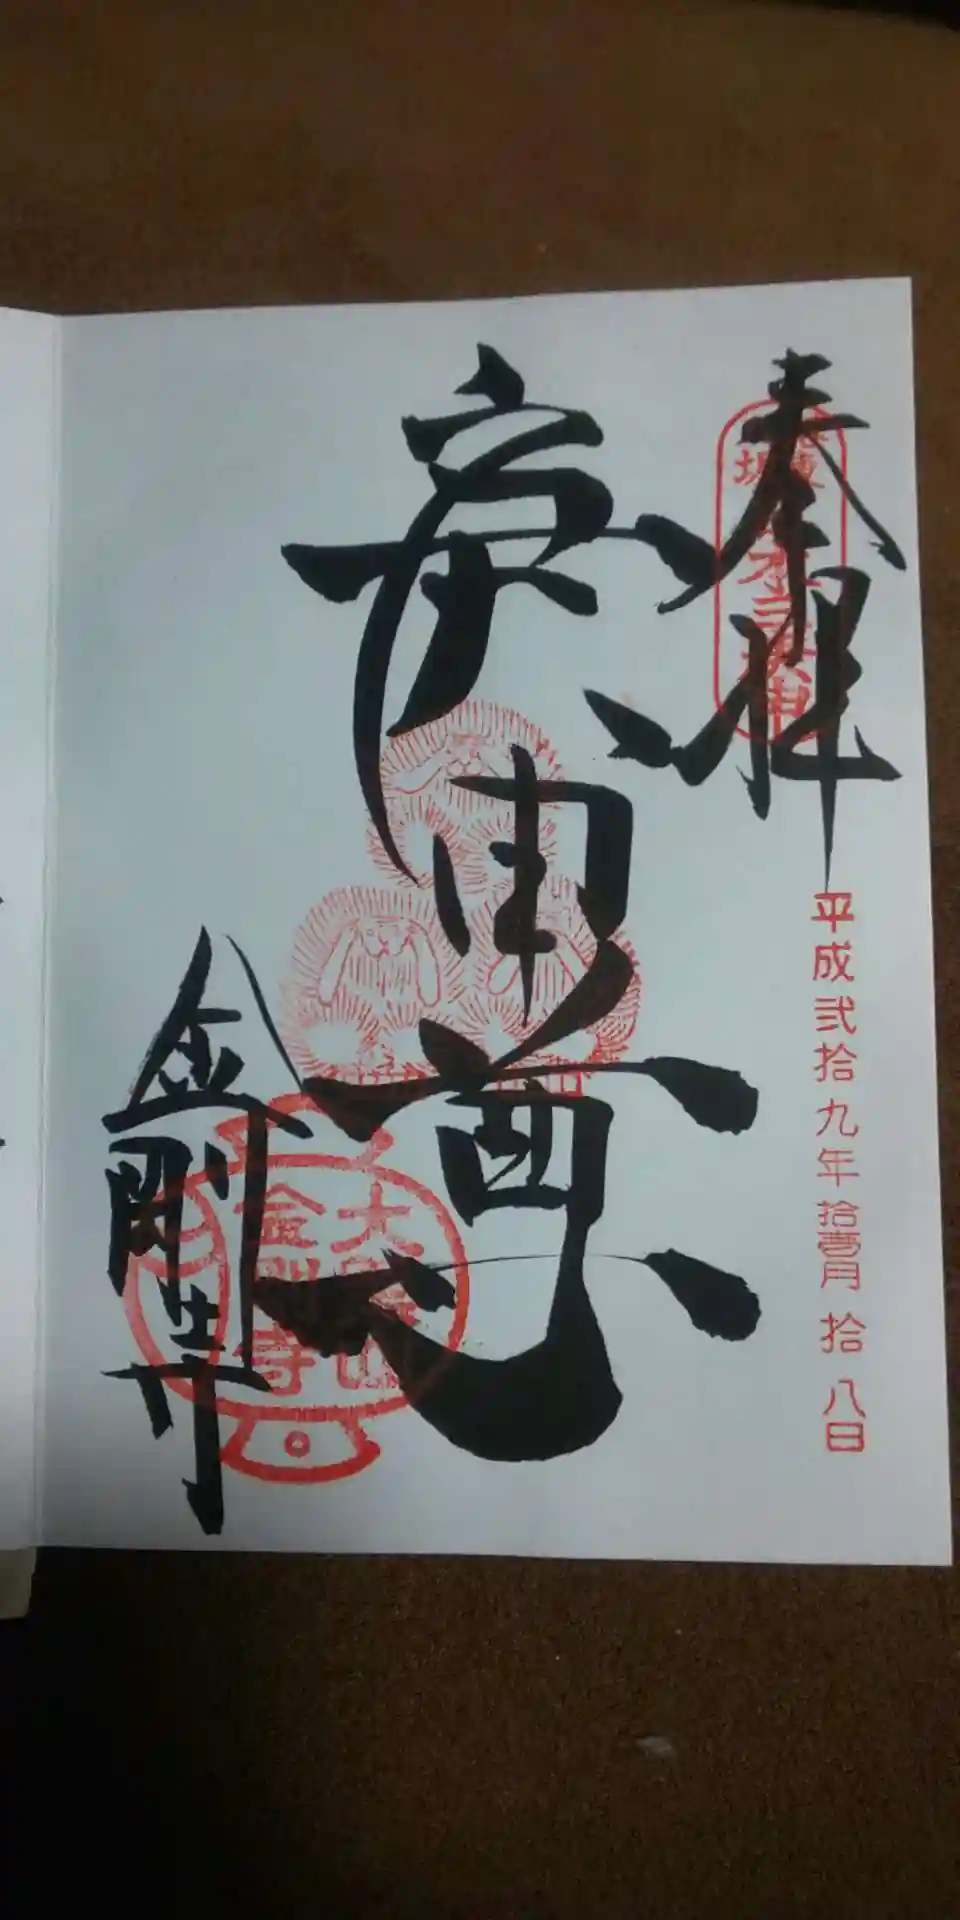 奉拝
平成弐拾九年拾壹月拾八日
庚申尊
金剛寺
大
金剛寺